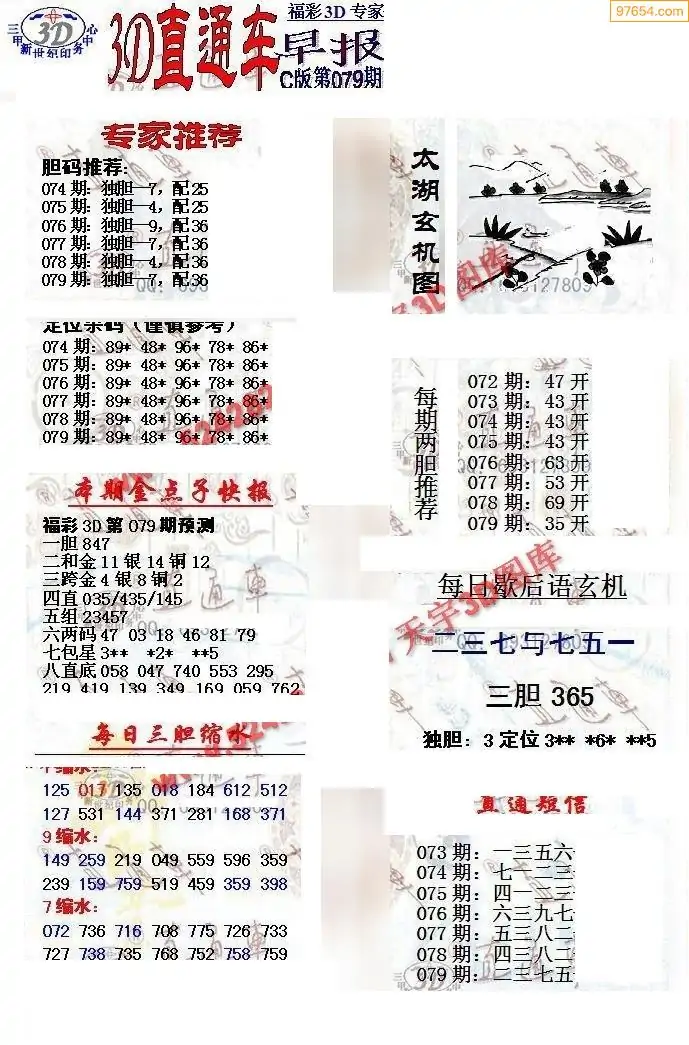 97654.com
三甲 3D 中心
新世纪印务
3D直通车
福彩3D专家
早报
C版第079期
专家推荐
胆码推荐:
074期: 独胆—7, 配25
075期: 独胆—4, 配25
076期: 独胆—9, 配36
077期: 独胆—7, 配36
078期: 独胆—4, 配36
079期: 独胆—7, 配36
定位杀码(谨慎参考)
074期: 89* 48* 96* 78* 86*
075期: 89* 48* 96* 78* 86*
076期: 89* 48* 96* 78* 86*
077期: 89* 48* 96* 78* 86*
078期: 89* 48* 96* 78* 86*
079期: 89* 48* 96* 78* 86*
本期金点子快报
福彩3D第079期预测
一胆847
二和金11银14铜12
三跨金4银8铜2
四直035/435/145
五组23457
六两码47 03 18 46 81 79
七包星3** *2* **5
八直底058 047 740 553 295
219 419 139 349 169 059 762
每日三胆缩水
缩水:
125 017 135 018 184 612 512
127 531 144 371 281 168 371
9缩水:
149 259 219 049 559 596 359
239 159 759 519 459 359 398
7缩水:
072 736 716 708 775 726 733
727 738 735 768 752 758 759
太湖玄机图
天宇3D图库
每期两胆推荐
072期: 47开
073期: 43开
074期: 43开
075期: 43开
076期: 63开
077期: 53开
078期: 69开
079期: 35开
每日歇后语玄机
二三七与七五一
三胆365
独胆: 3定位3** *6* **5
直通短信
073期: 一三五六
074期: 七一二三
075期: 四一二三
076期: 六三九七
077期: 五三八二
078期: 四三八二
079期: 二三七五